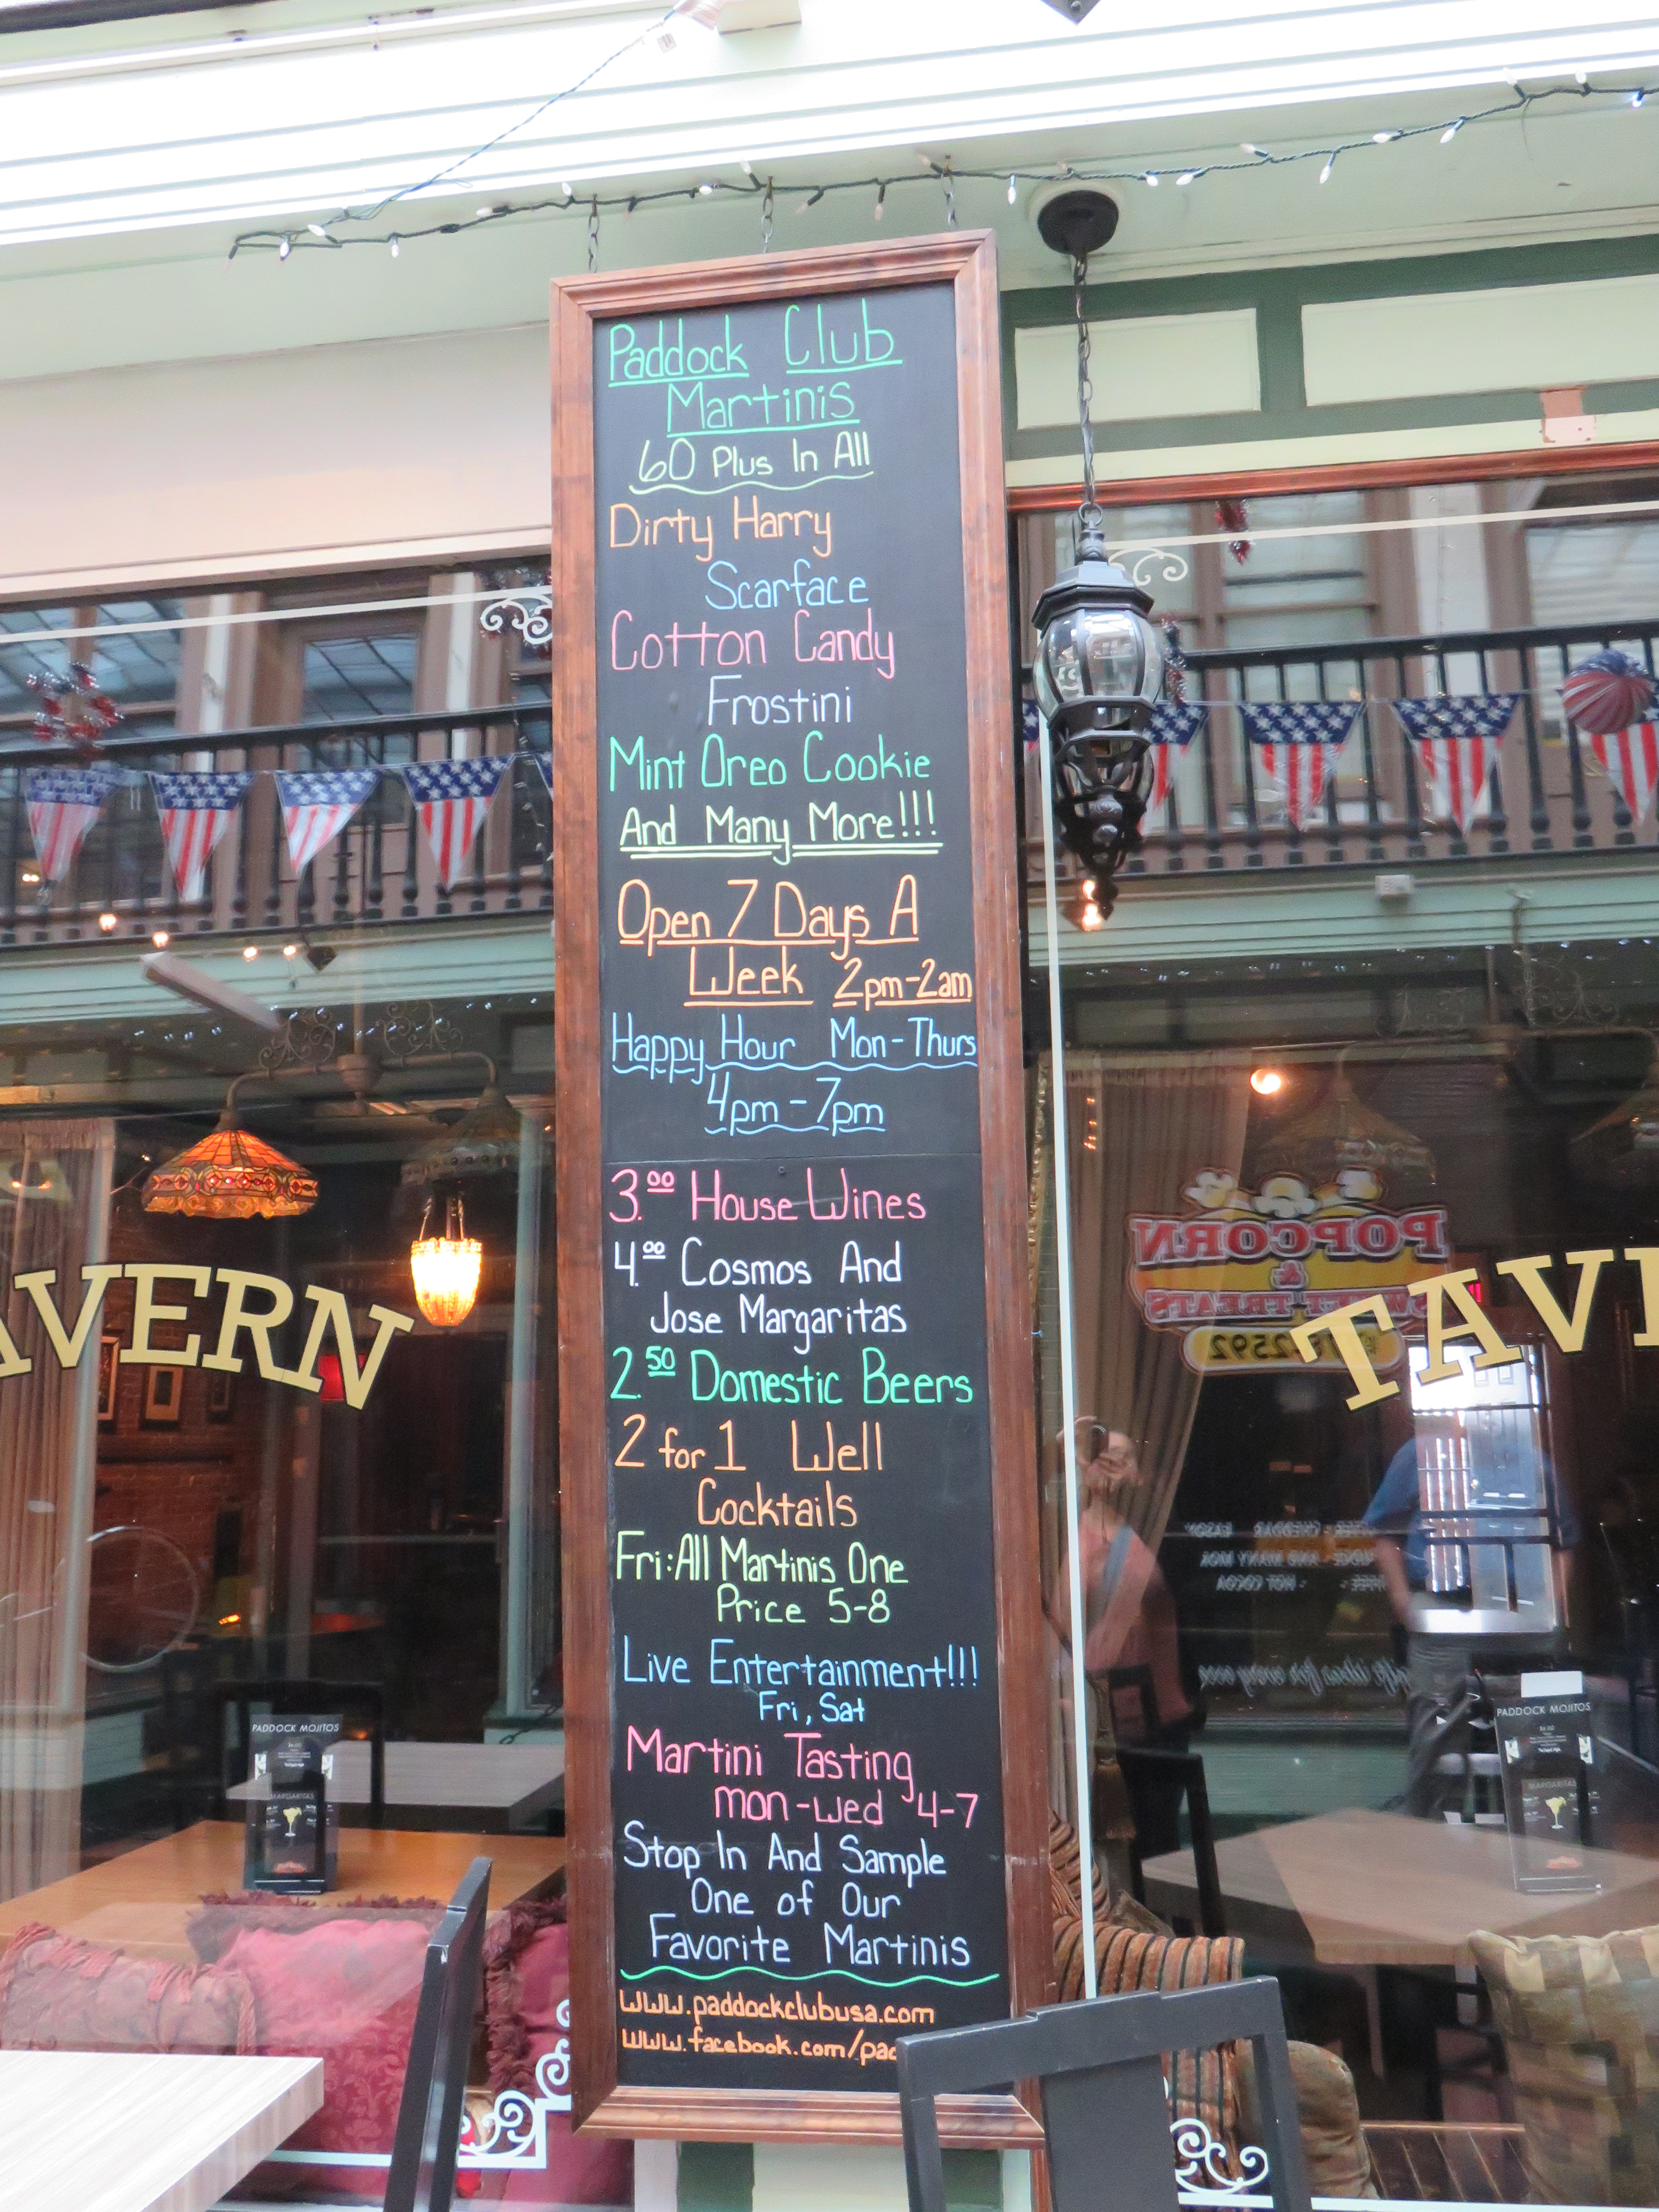 Paddock Club
Martinis
60 Plus In All
Dirty Harry
Scarface
Cotton Candy
Frostini
Mint Oreo Cookie
And Many More!!!
Open 7 Days A
Week 2pm-2am
Happy Hour Mon-Thurs
4pm-7pm
3.00 House Wines
4.00 Cosmos And
Jose Margaritas
2.50 Domestic Beers
2 for 1 Well
Cocktails
Fri: All Martinis One
Price 5-8
Live Entertainment!!!
Fri, Sat
Martini Tasting
mon-wed 4-7
Stop In And Sample
One of Our
Favorite Martinis
www.paddockclubusa.com
www.facebook.com/pad
AVERN
TAVE
POPCORN
&
SWEET TREATS
2592
PADDOCK MOJITOS
MARGARITAS
PADDOCK MOJITOS
MARGARITAS